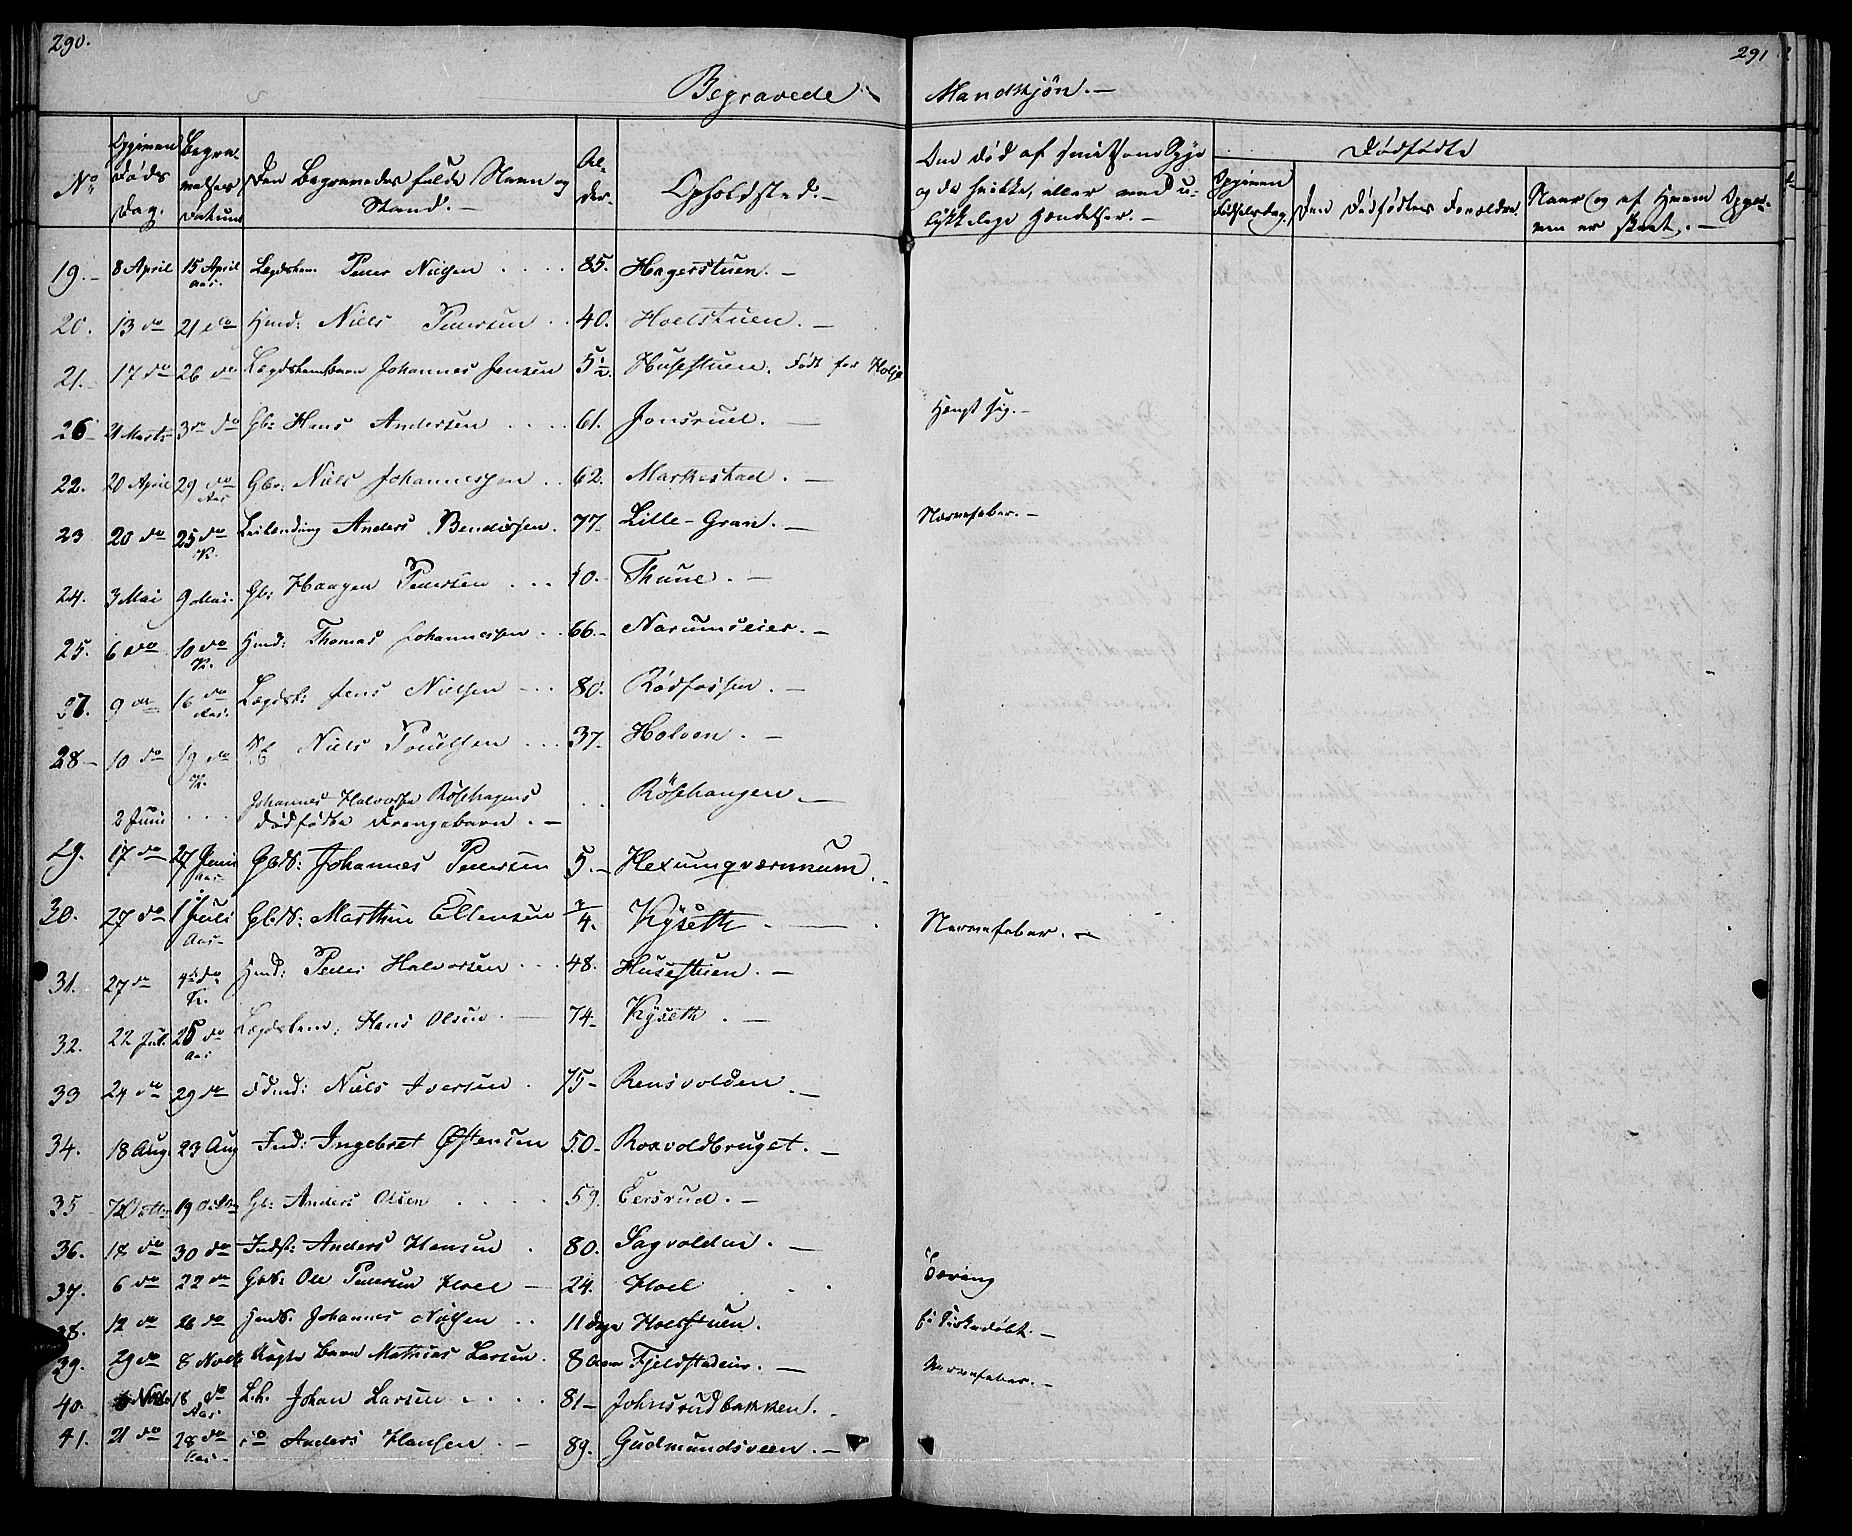 290.
291
Begravede
Mandkjön.
No
Opgiven Döds Dag.
Begravelses Datum
Den Begravedes fulde Navn og Stand.
Alder.
Opholdsted.
Om död af smitsom Syge
og da hvilke, eller ved u-
lykkelige Hændelser.
Dödfödte
Opgiven Födselsdag.
Den Dödfödtes Forældre.
Naar og af Hvem Opgaven er skeet.
19. 8 April 15 April Aas. Lægdslem. Peder Nielsen 85. Hagerstuen.
20. 13 do 21 do Hmd: Niels Pedersen 40. Hoelstuen.
21. 17 do 26 do Johannes Jensen 5 1/2 Husestuen. Födt for
26 21 Marts 3 do Gbr: Hans Andersen 61. Jonsrud. Hængt sig.
22. 20 April 29 do Aas Gbr: Niels Johannessen 62. Markestad.
23 20 do 25 do K. Leilending Anders Bendixsen. 77 Lille-Gran. Nervefeber.
24. 3 Mai 9 Mai. Gbr: Haagen Pedersen 10. Thune.
25. 6 do 10 do K. Hmd: Thomas Johannessen 66. Narumseier.
27. 9 do 16 do Aas. Lægdsl: Jens Nielsen 80. Rödfossen.
28 10 do 19 do K. Niels Poulsen 37. Holven.
2 Juni Johannes Halvorsen Röshagens
dödfödte Drengebarn. Röshaugen
29. 17 do 27 Juni Aas GbS: Johannes Pedersen 5. Hexumqværnmum
30. 27 do 1 Juli Aas GbS: Marthin Ellensen 3/4. Kÿseth Nervefeber.
31. 27 do 4 do K. Hmd: Peder Halvorsen 48. Husestuen.
32. 22 Jul. 25 do Aas Lægdslem: Hans Olsen 74 Kÿseth.
33 24 do 29 do Niels Iversen 75 Rensvolden
34. 18 Aug. 23 Aug Ind: Ingebret Østensen 50 Roxvoldbruget.
35 7 Octbr 19 Octbr Gbr: Anders Olsen 59. Eersrud.
36. 18 do 30 do Indst: Anders Hansen 80.
37. 6 do 22 do GbS: Ole Pedersen Hoel 24. Hoel Tæring
38. 12 do 26 do HmdS. Johannes Nielsen 11 Dage Hoelstuen.
39. 29 do 8 Novb Uægte Barn Mathias Larsen. 8 Fjeldstadeie. Nervefeber.
40. Nov. 18 do Aas L.l. Johan Larsen 81 Johnsrudbakken.
41. 21 do 28 do Aas do Anders Hansen. 89. Gudmundsveen.